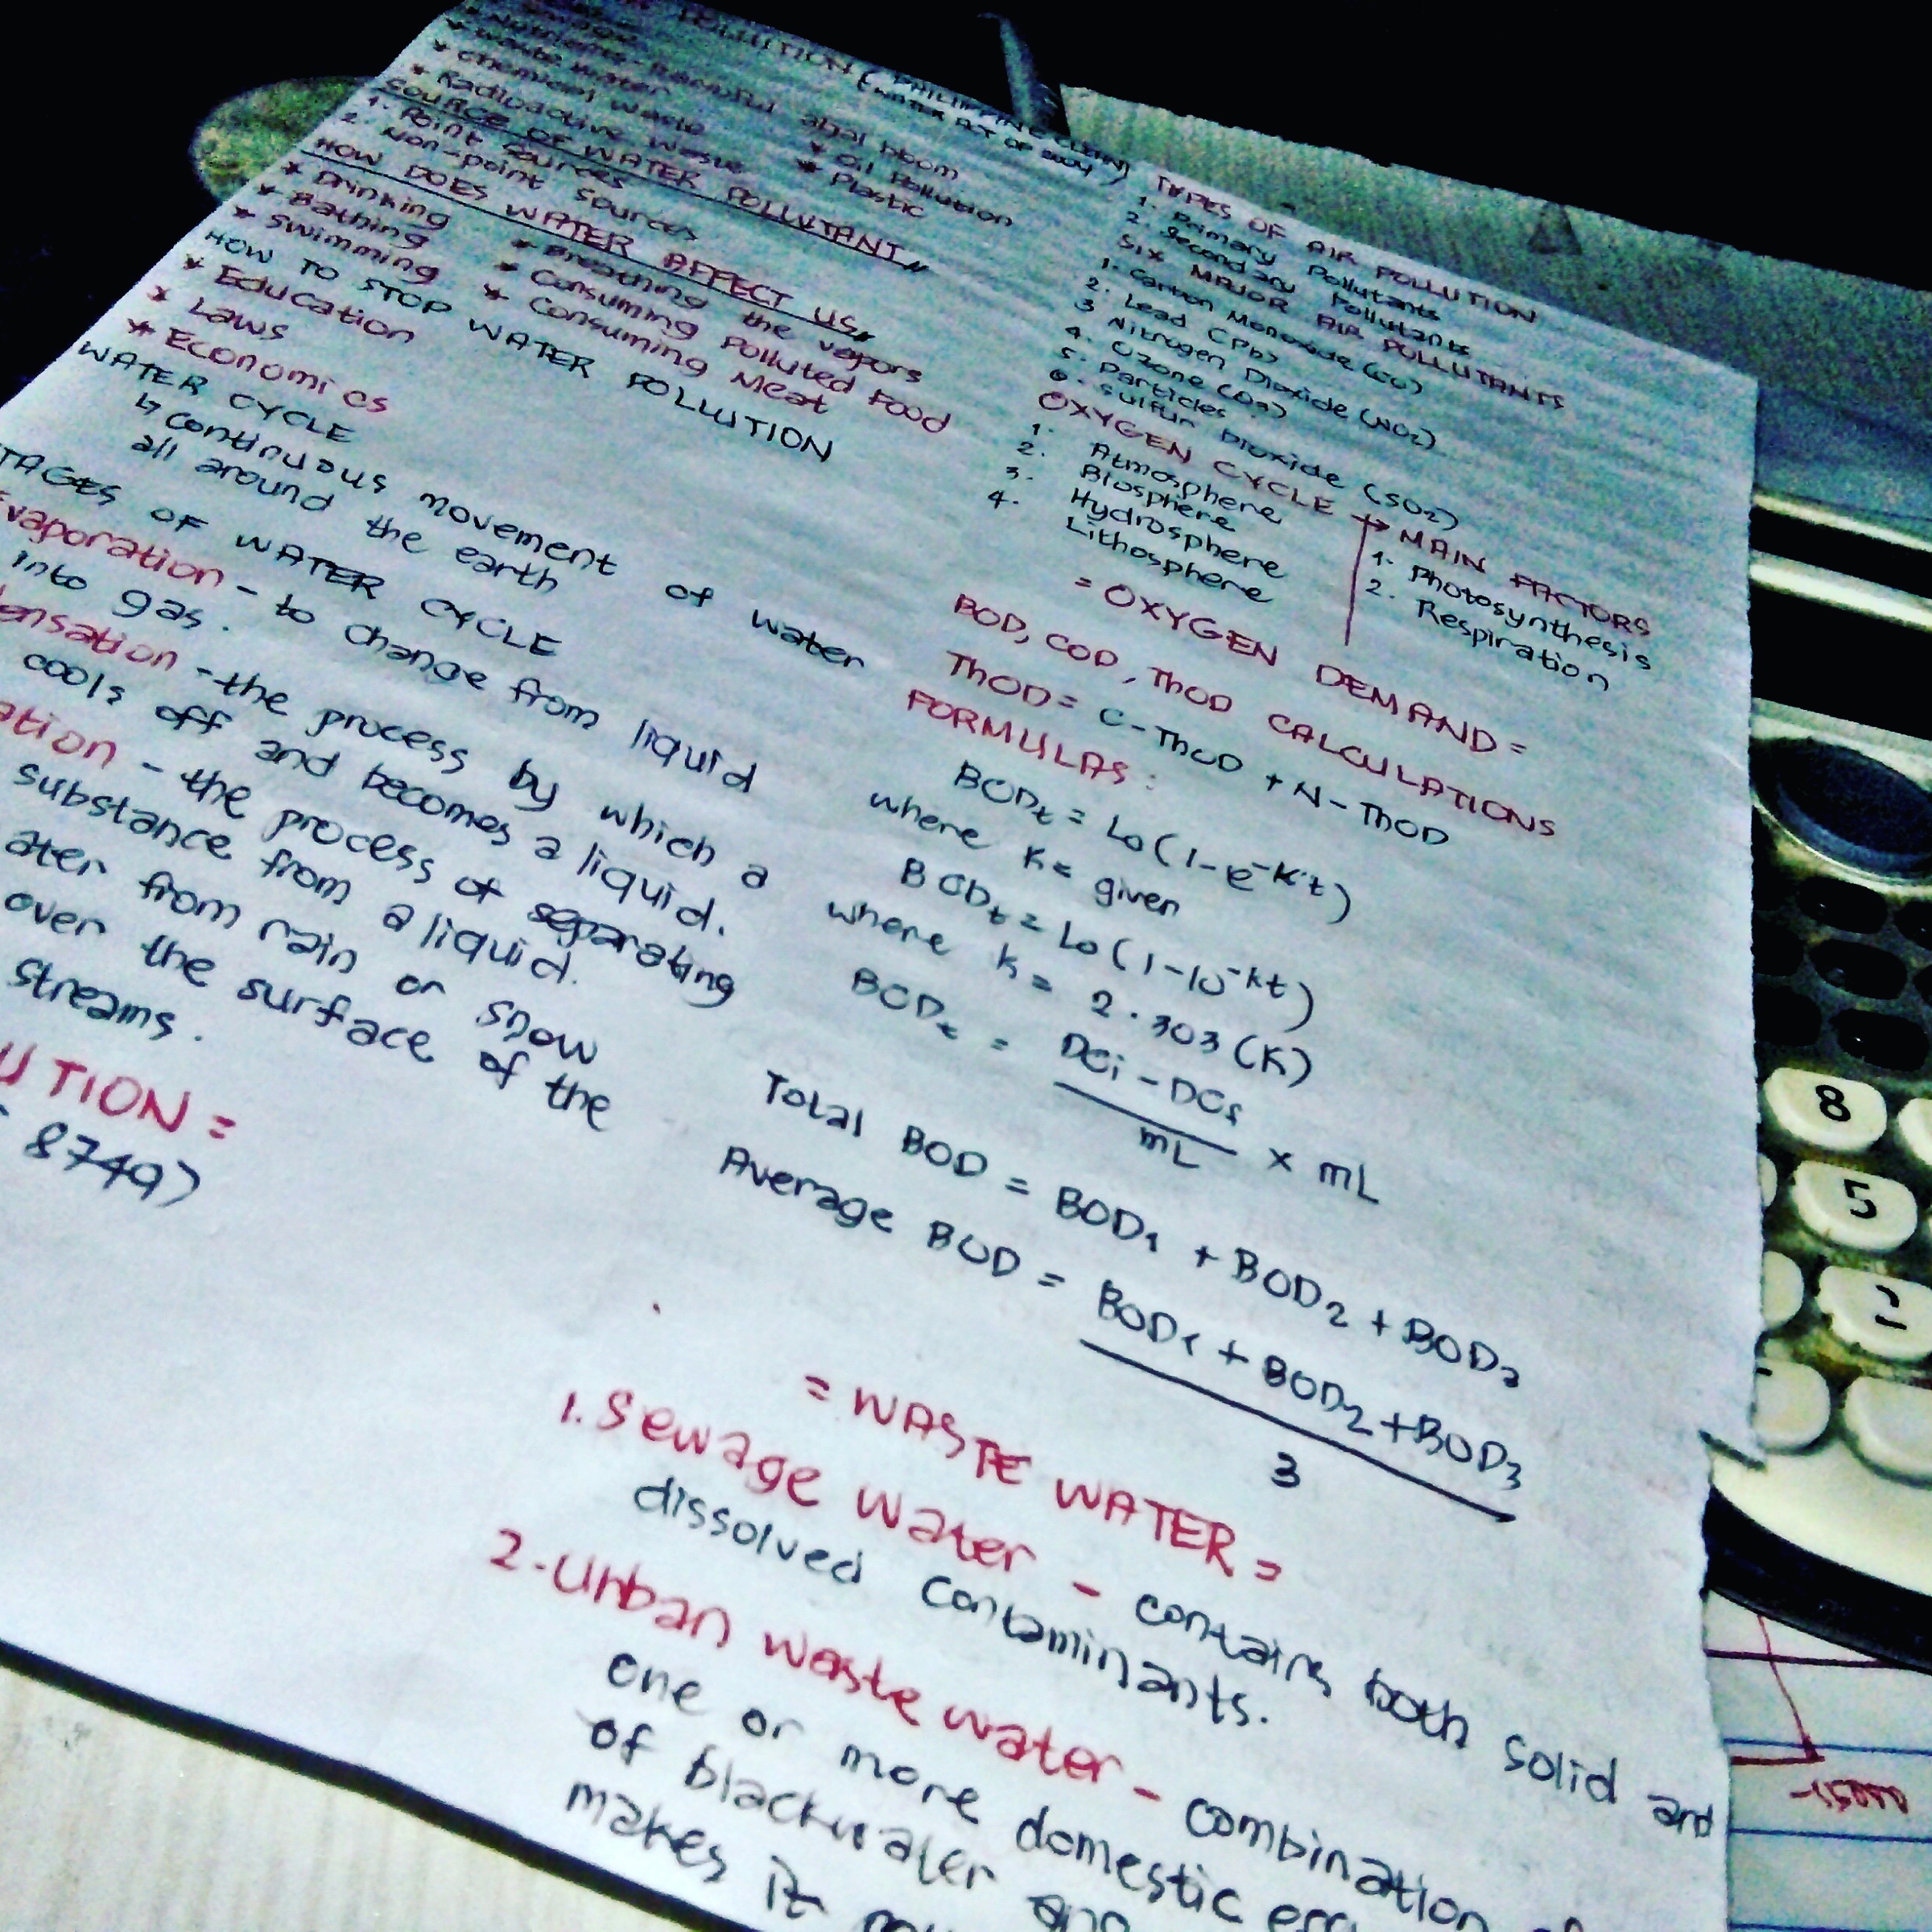 POLLUTION (PHILIPPINE CLEAN
WATER ACT OF 2004)
algal bloom
* Waste Water
* Oil Pollution
* Chemical Waste
* Plastic
* Radioactive Waste
SOURCE OF WATER POLLUTANT
1. Point Sources
2. Non-point Sources
HOW DOES WATER AFFECT US
* Drinking
* Breathing the vapors
* Bathing
* Consuming Polluted Food
* Swimming
* Consuming Meat
HOW TO STOP WATER POLLUTION
* Education
* Laws
* Economics
WATER CYCLE
↳ Continuous movement of water
all around the earth
TAGES OF WATER CYCLE
Evaporation - to change from liquid
into gas.
ensation - the process by which a
cools off and becomes a liquid.
ation - the process of separating
substance from a liquid.
ater from rain or snow
over the surface of the
streams.
UTION =
8749)
TYPES OF AIR POLLUTION
1. Primary Pollutants
2. Secondary Pollutants
SIX MAJOR AIR POLLUTANTS
1. Carbon Monoxide (CO)
2. Lead (Pb)
3 Nitrogen Dioxide (NO2)
4. Ozone (O3)
5. Particles
6. Sulfur Dioxide (SO2)
OXYGEN CYCLE → MAIN FACTORS
1. Atmosphere
2. Biosphere
3. Hydrosphere
4. Lithosphere
1. Photosynthesis
2. Respiration
= OXYGEN DEMAND =
BOD, COD, ThOD CALCULATIONS
ThOD = C-ThOD + N-ThOD
FORMULAS:
BODt = Lo(1-e^-K't)
where K= given
BODt = Lo(1-10^-kt)
where k = 2.303(K)
BODt = DOi - DOf / mL × mL
Total BOD = BOD1 + BOD2 + BOD3
Average BOD = BOD1 + BOD2 + BOD3
3
= WASTE WATER =
1. Sewage Water - contains both solid and
dissolved contaminants.
2. Urban waste water - combination of
one or more domestic
of blackwater
makes it
8
5
2